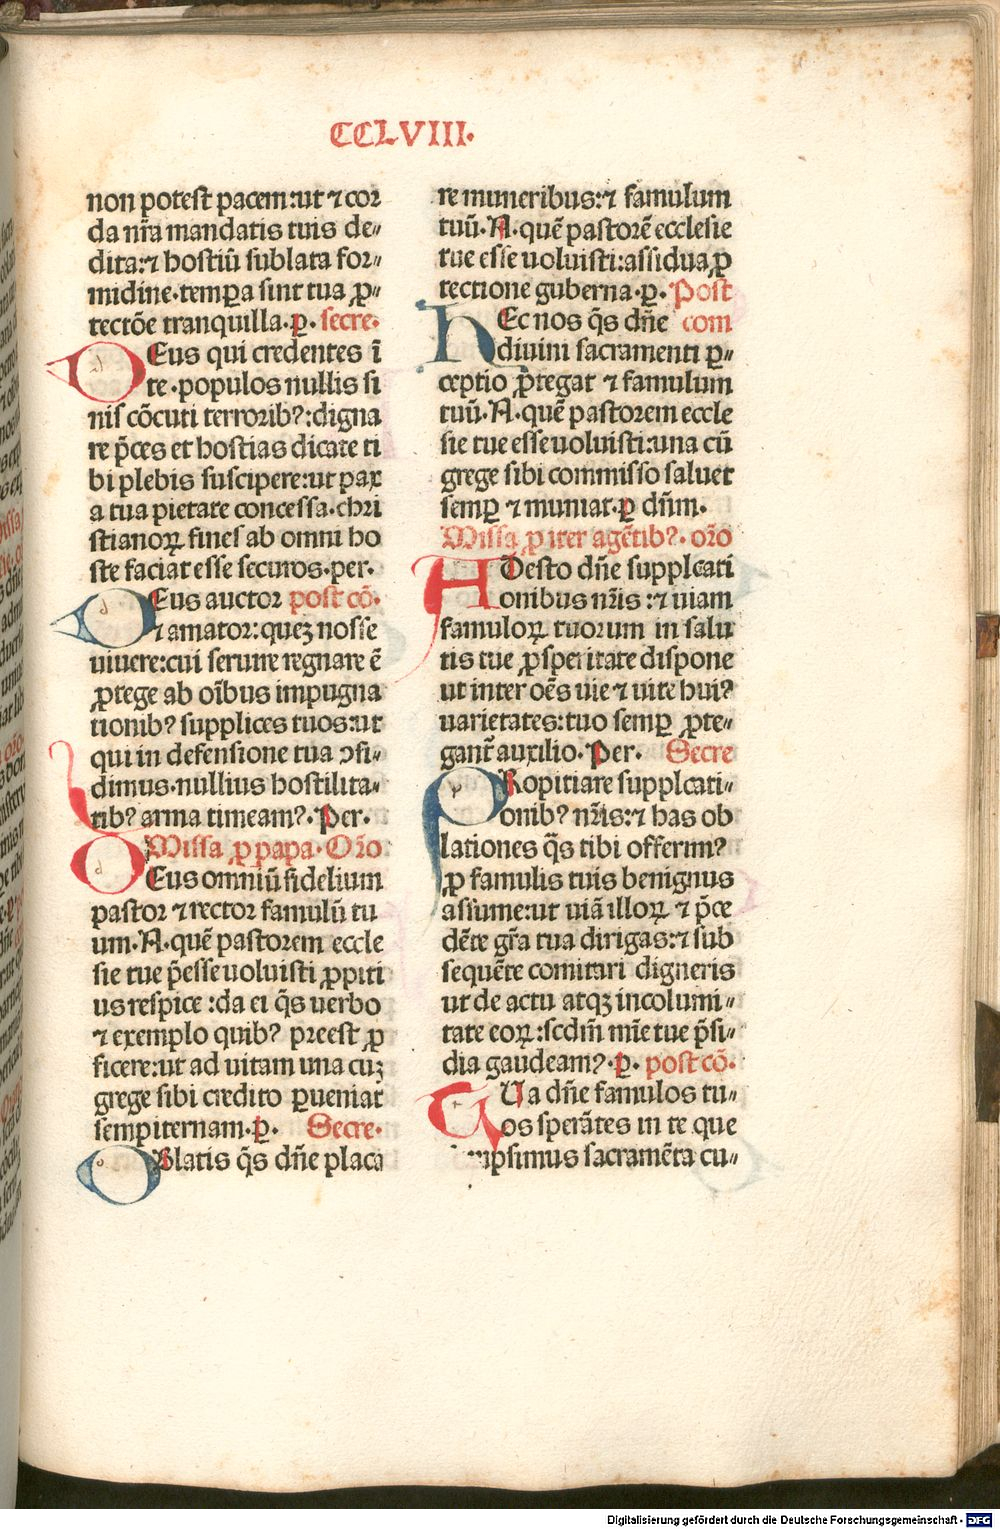 CCLVIII.
non potest pacem:ut ⁊ cor
da nr̃a mandatis tuis de〃
dita:⁊ hostiũ sublata for〃
midine.temꝑa sint tua ꝓ〃
tectõe tranquilla.ꝑ. secre.
DEus qui credentes ĩ
te.populos nullis si
nis cõcuti terroribꝰ:digna
re p̃ces et hostias dicate ti
bi plebis suscipere:ut pax
a tua pietate concessa.chri
stianoꝝ fines ab omni ho
ste faciat esse securos.per.
DEus auctor post cõ.
⁊ amator:quez nosse
uiuere:cui seruire regnare ẽ
ꝓtege ab oĩbus impugna
tionibꝰ supplices tuos:ut
qui in defensione tua ↄfi〃
dimus.nullius hostilita〃
tibꝰ arma timeamꝰ.Per.
Missa ꝓ papa.Oro
DEus omniũ fidelium
pastor ⁊ rector famulũ tu
um.N.quẽ pastorem eccle
sie tue p̃esse uoluisti ꝓpiti
us respice:da ei q̃s uerbo
⁊ exemplo quibꝰ preest ꝓ
ficere:ut ad uitam una cuz
grege sibi credito ꝑueniat
sempiternam.ꝑ. Secre.
OBlatis q̃s dñe placa
re muneribus:⁊ famulum
tuũ.N.quẽ pastorẽ ecclesie
tue esse uoluisti:assidua ꝓ
tectione guberna.ꝑ. Post
HEc nos q̃s dñe com
diuini sacramenti ꝑ〃
ceptio ꝓtegat ⁊ famulum
tuũ.N.quẽ pastorem eccle
sie tue esse uoluisti:una cũ
grege sibi commisso saluet
semꝑ ⁊ muniat.ꝑ dñm.
Missa ꝓ iter agẽtibꝰ.oro
ADesto dñe supplicati
onibus nr̃is:⁊ uiam
famuloꝝ tuorum in salu
tis tue ꝓsperitate dispone
ut inter oẽs uie ⁊ uite huiꝰ
uarietates:tuo semꝑ ꝓte〃
gant̃ auxilio.Per. Secre
PRopitiare supplicati〃
onibꝰ nr̃is:⁊ has ob
lationes q̃s tibi offerimꝰ
ꝓ famulis tuis benignus
assume:ut uiã illoꝝ ⁊ p̃ce
dẽte gr̃a tua dirigas:⁊ sub
sequẽte comitari digneris
ut de actu atqꝫ incolumi〃
tate eoꝝ:scdm̃ mĩe tue p̃si〃
dia gaudeamꝰ.ꝑ. post cõ.
SUa dñe famulos tu〃
os sperãtes in te que
sumpsimus sacramẽta cu〃
Digitalisierung gefördert durch die Deutsche Forschungsgemeinschaft - DFG